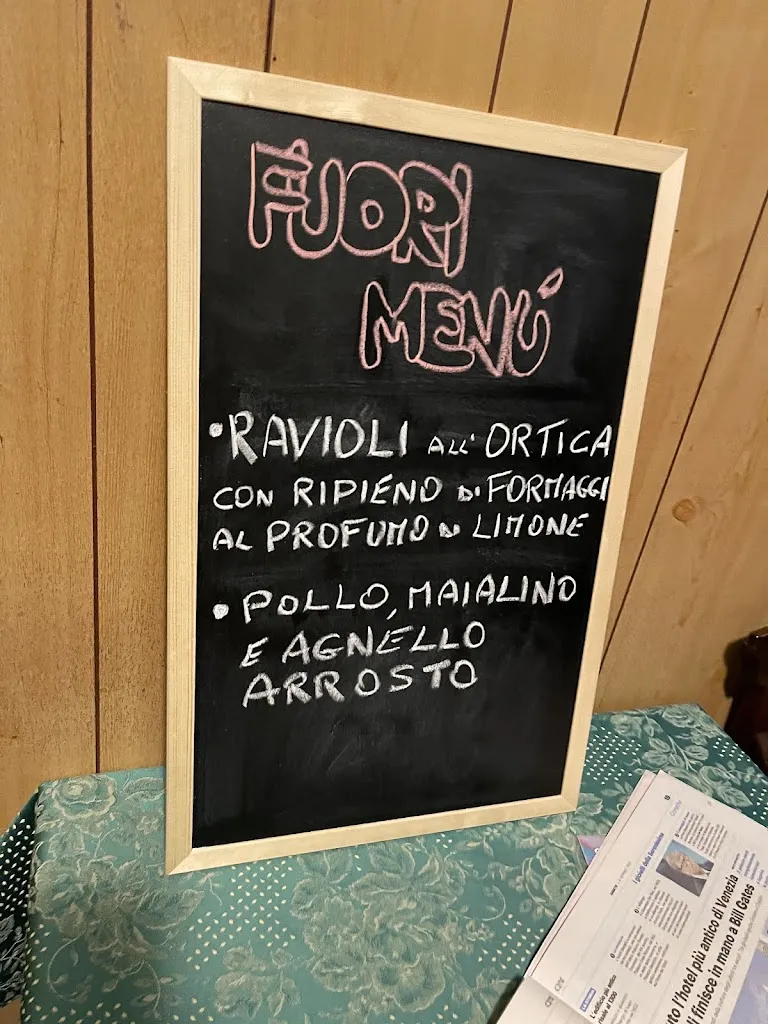 FUORI
MENÚ
• RAVIOLI ALL' ORTICA
CON RIPIENO di FORMAGGI
AL PROFUMO di LIMONE
• POLLO, MAIALINO
E AGNELLO
ARROSTO
i gioielli della Serenissima
L'edificio più antico
l'hotel più antico di Venezia
finisce in mano a Bill Gates